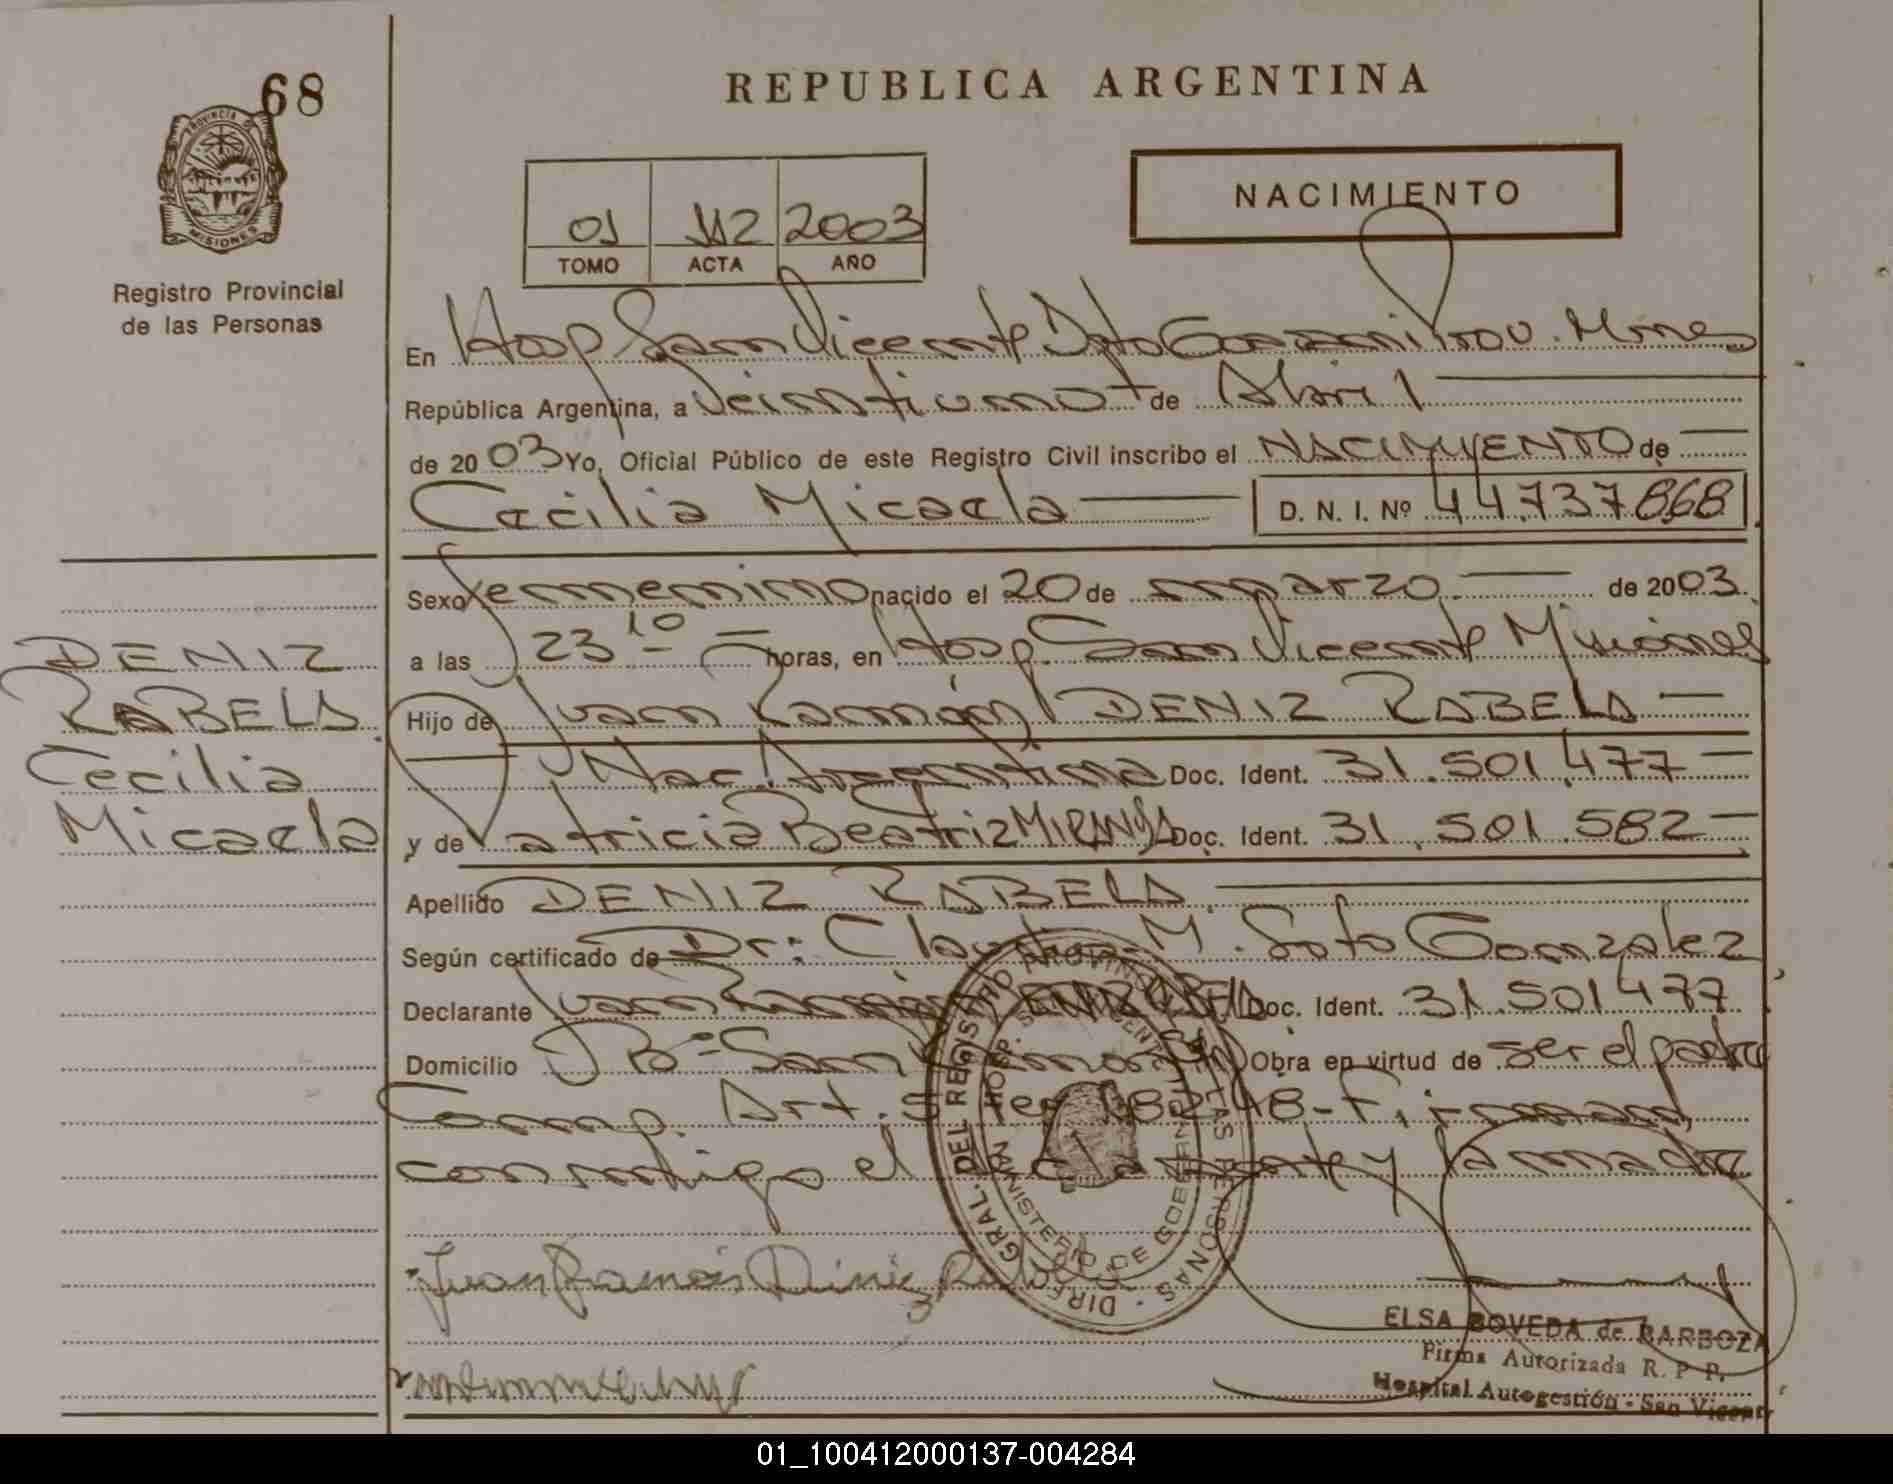 68
REPUBLICA ARGENTINA
PROVINCIA DE
MISIONES
Registro Provincial
de las Personas
NACIMIENTO
01 112 2003
TOMO ACTA AÑO
En Hosp San Vicente Dpto Guaraní Prov. Mnes
República Argentina, a Veintiuno de Abril
de 2003 Yo, Oficial Público de este Registro Civil inscribo el NACIMIENTO de
Cecilia Micaela D. N. I. Nº 44.737868
Sexo femenino nacido el 20 de marzo de 2003
a las 23 10 horas, en Hosp. San Vicente Misiones
Hijo de Juan Ramón DENIZ RABELA
Nac. Argentina Doc. Ident. 31.501.477
y de Patricia Beatriz MIRANDA Doc. Ident. 31.501.582
Apellido DENIZ RABELA
Según certificado de Dr: M. Soto Gonzalez
Declarante Juan Ramón DENIZ RABELA Doc. Ident. 31.501477
Domicilio Bº San Obra en virtud de ser el padre
Comp. Art. 5 Ley 18248- Firmand
conmigo el declarante y la madre
DENIZ
RABELA
Cecilia
Micaela
Juan Ramón Diniz
DIREC. GRAL. DEL REGISTRO PROVINCIAL DE LAS PERSONAS
HOSP. SAN VICENTE
MINISTERIO DE GOBIERNO
ELSA BOVEDA de BARBOZA
Firma Autorizada R. P. P.
Hospital Autogestión - San Vicente
01_100412000137-004284